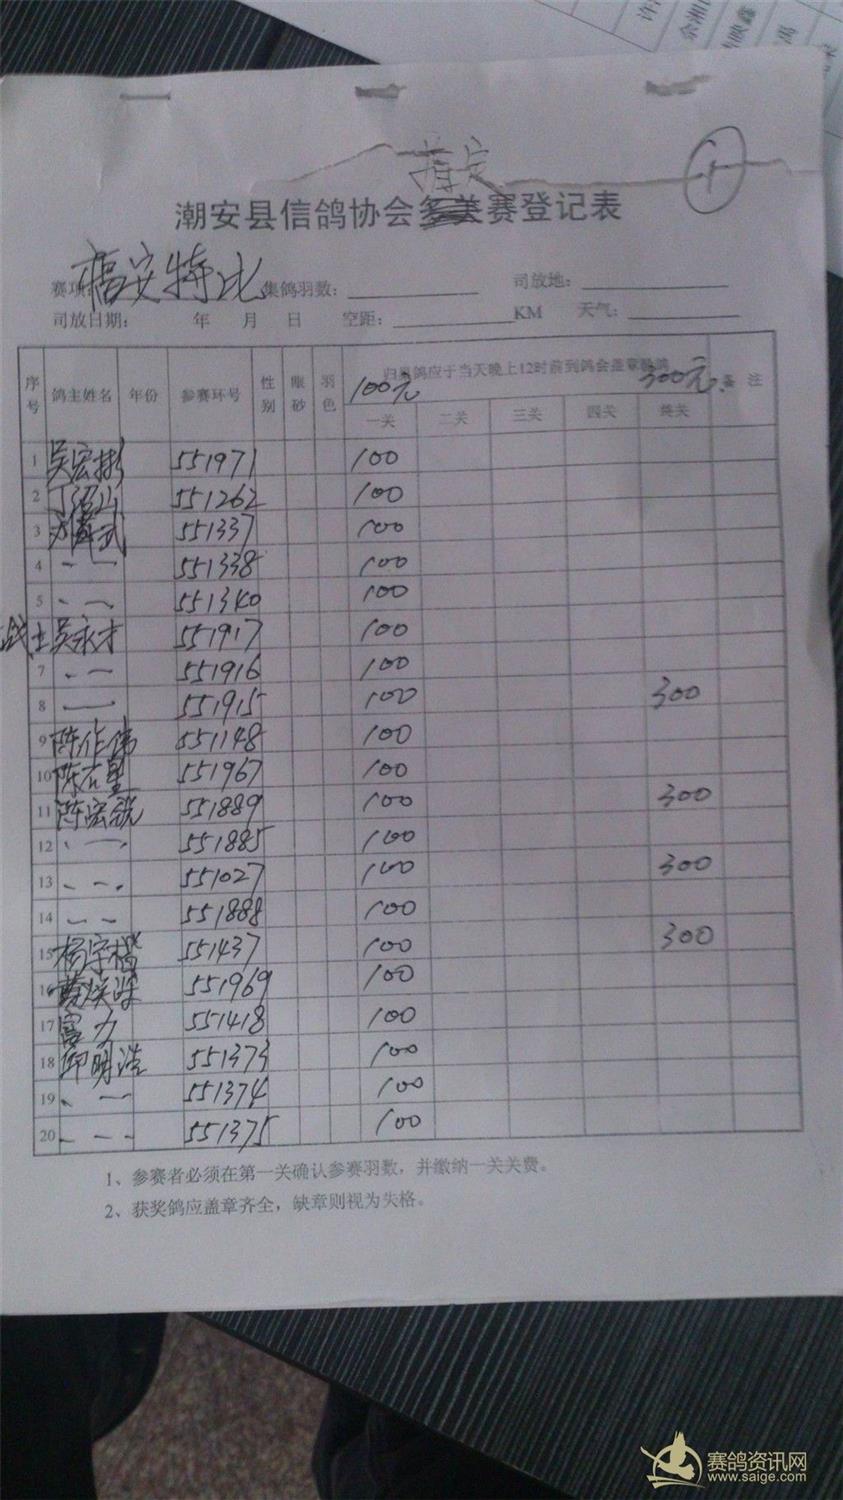 指定
1
潮安县信鸽协会多关赛登记表
赛项: 福安特比 集鸽羽数: 司放地:
司放日期: 年 月 日 空距: KM 天气:
序号 鸽主姓名 年份 参赛环号 性别 眼砂 羽色 归巢鸽应于当天晚上12时前到鸽会盖章验鸽 备注
100元 300元
一关 二关 三关 四关 终关
1 吴宏彬 551971 100
2 551262 100
3 551337 100
4 551338 100
5 551340 100
吴永才 551917 100
7 551916 100
8 551915 100 300
9 陈作伟 551148 100
10 陈石星 551967 100
11 陈宏锐 551889 100 300
12 551885 100
13 551027 100 300
14 551888 100
15 杨宇楷 551437 100 300
16 551969 100
17 富力 551418 100
18 邱明浩 551373 100
19 551374 100
20 551375 100
1、参赛者必须在第一关确认参赛羽数，并缴纳一关关费。
2、获奖鸽应盖章齐全，缺章则视为失格。
赛鸽资讯网
www.saige.com